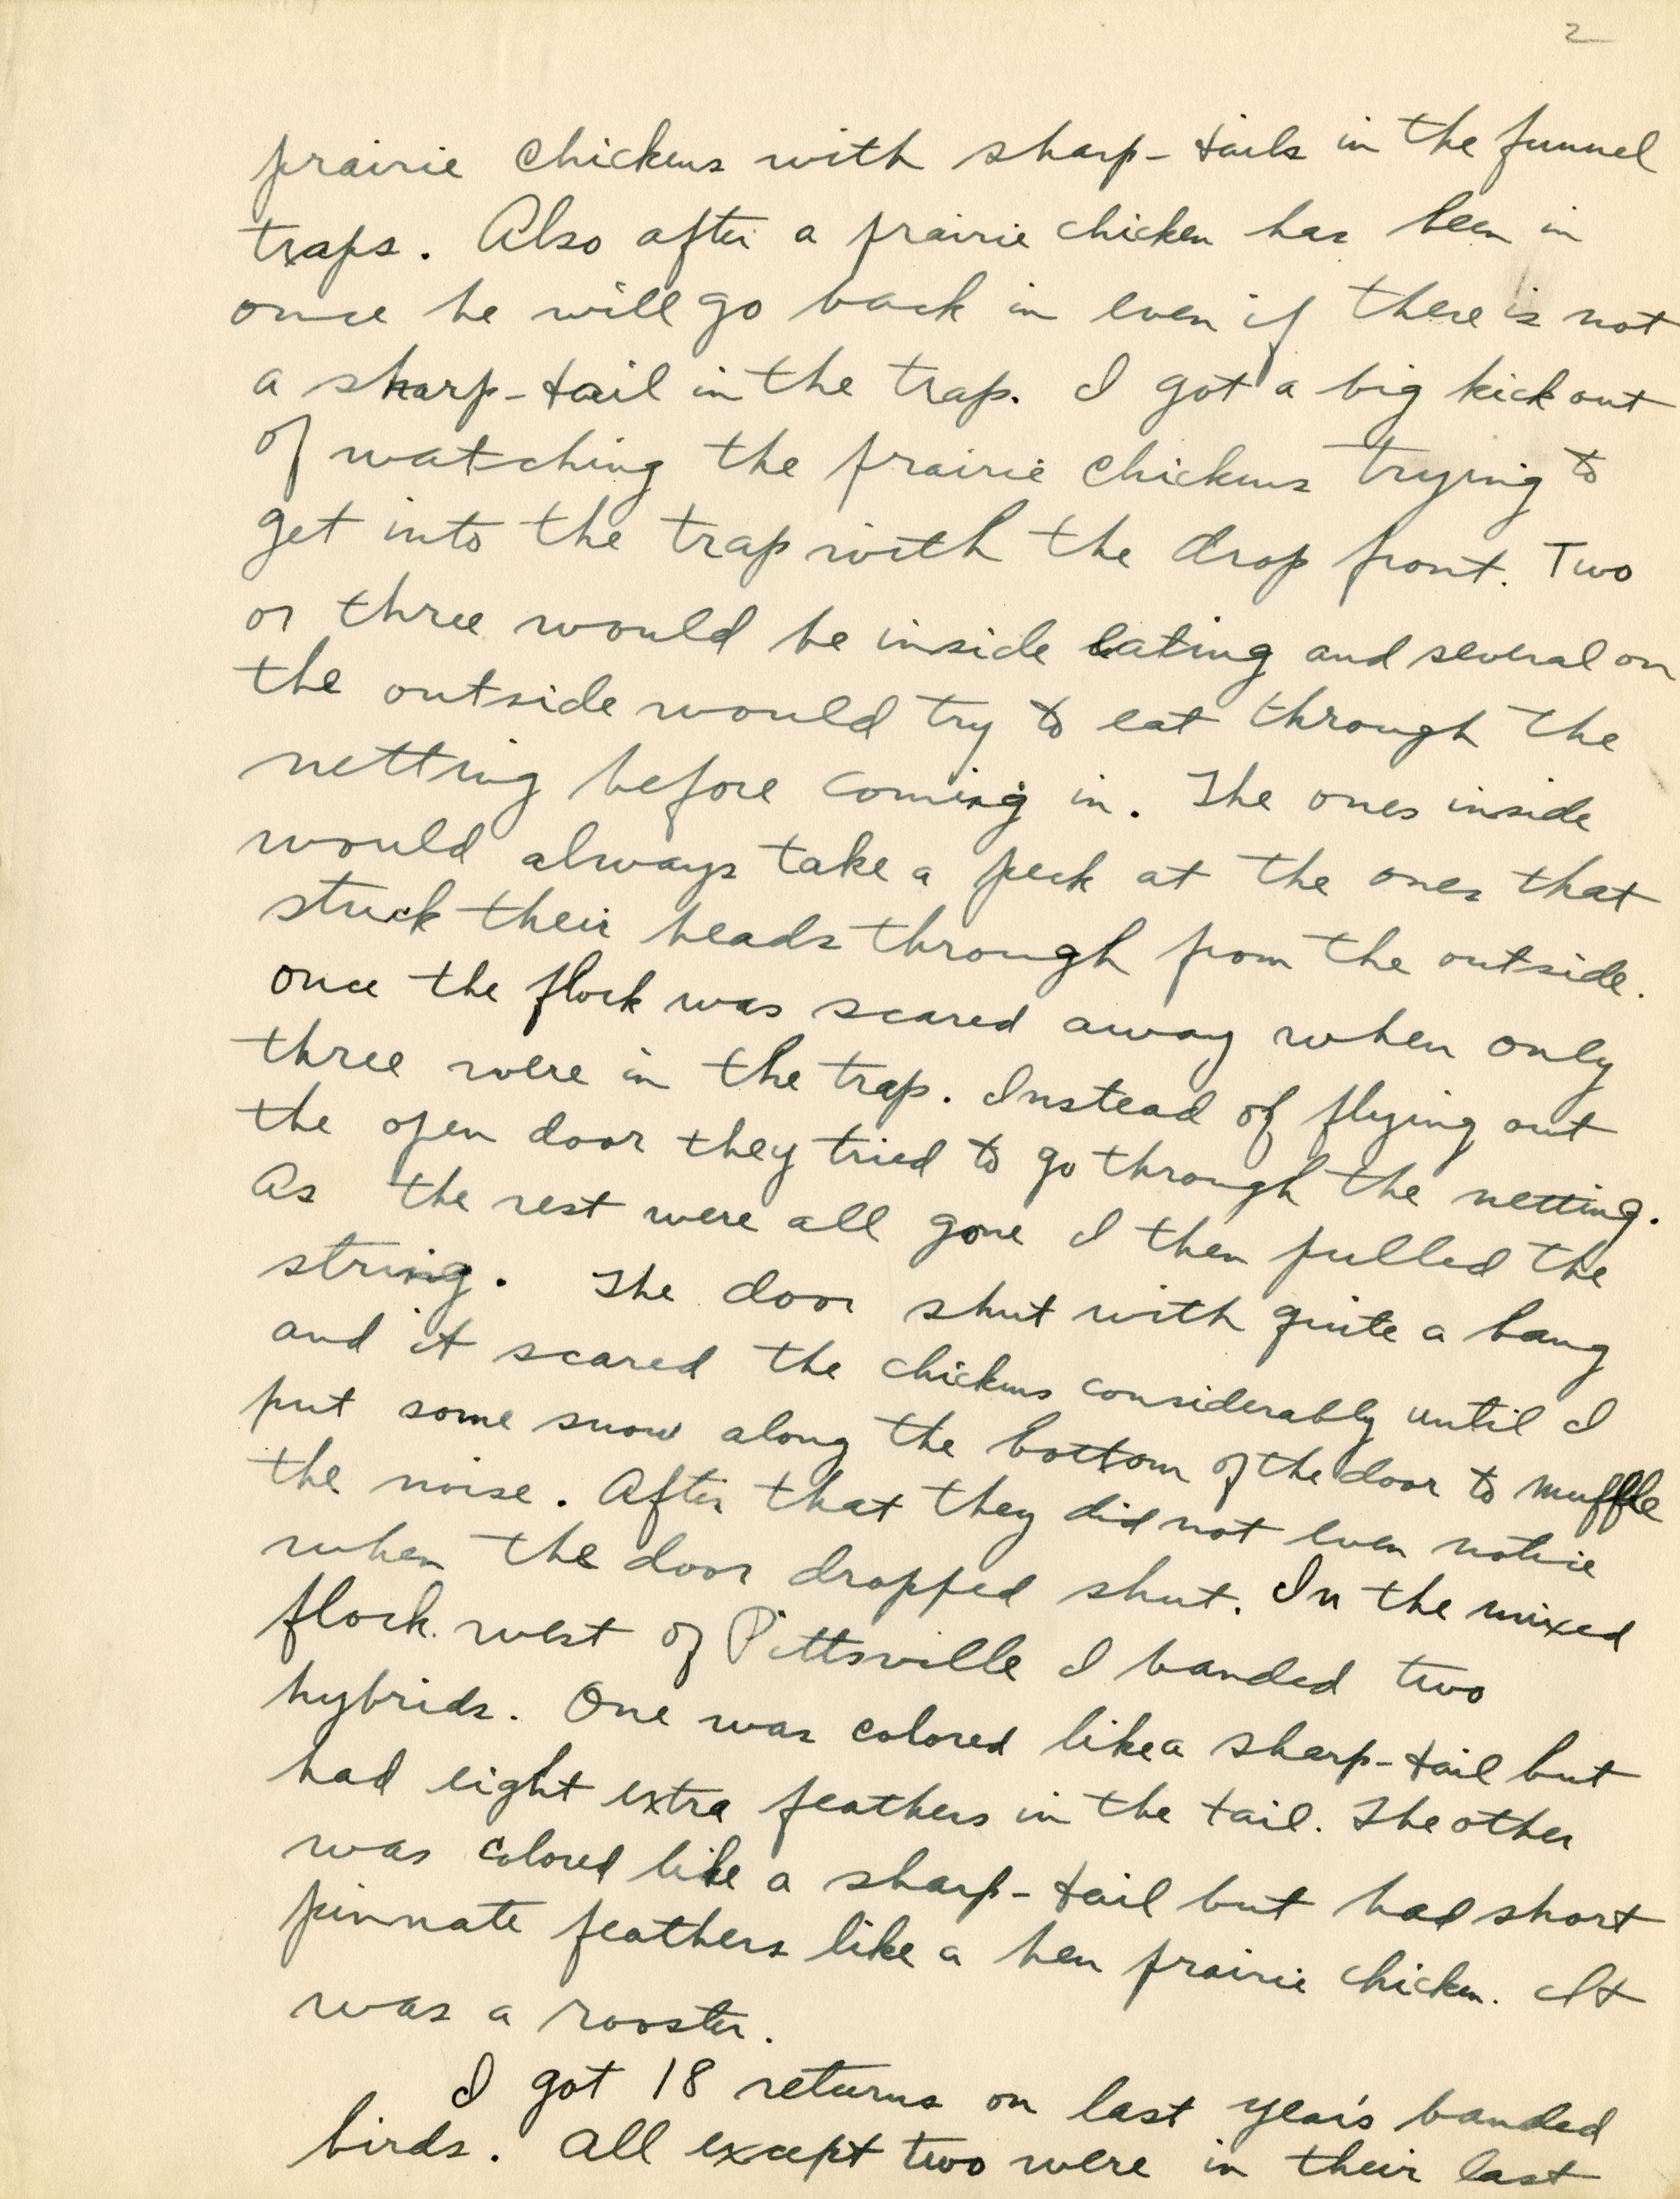 2
prairie chickens with sharp-tails in the funnel
traps. Also after a prairie chicken has been in
once he will go back in even if there is not
a sharp-tail in the trap. I got a big kick out
of watching the prairie chickens trying to
get into the trap with the drop front. Two
or three would be inside eating and several on
the outside would try to eat through the
netting before coming in. The ones inside
would always take a peck at the ones that
stuck their heads through from the outside.
once the flock was scared away when only
three were in the trap. Instead of flying out
the open door they tried to go through the netting.
As the rest were all gone I then pulled the
string. The door shut with quite a bang
and it scared the chickens considerably until I
put some snow along the bottom of the door to muffle
the noise. After that they did not even notice
when the door dropped shut. In the mixed
flock west of Pittsville I banded two
hybrids. One was colored like a sharp-tail but
had eight extra feathers in the tail. The other
was colored like a sharp-tail but had short
pinnate feathers like a hen prairie chicken. It
was a rooster.
I got 18 returns on last year's banded
birds. All except two were in their last